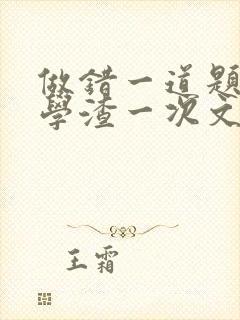 做错一道题
學渣一次文
王霜